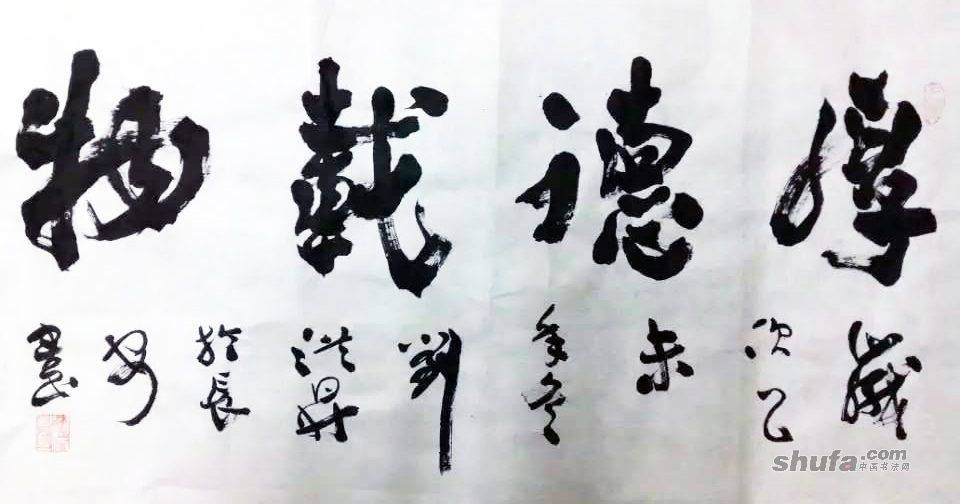 厚德載物
歲次乙未年冬劉洪昇於長安
shufa.com
中国书法网